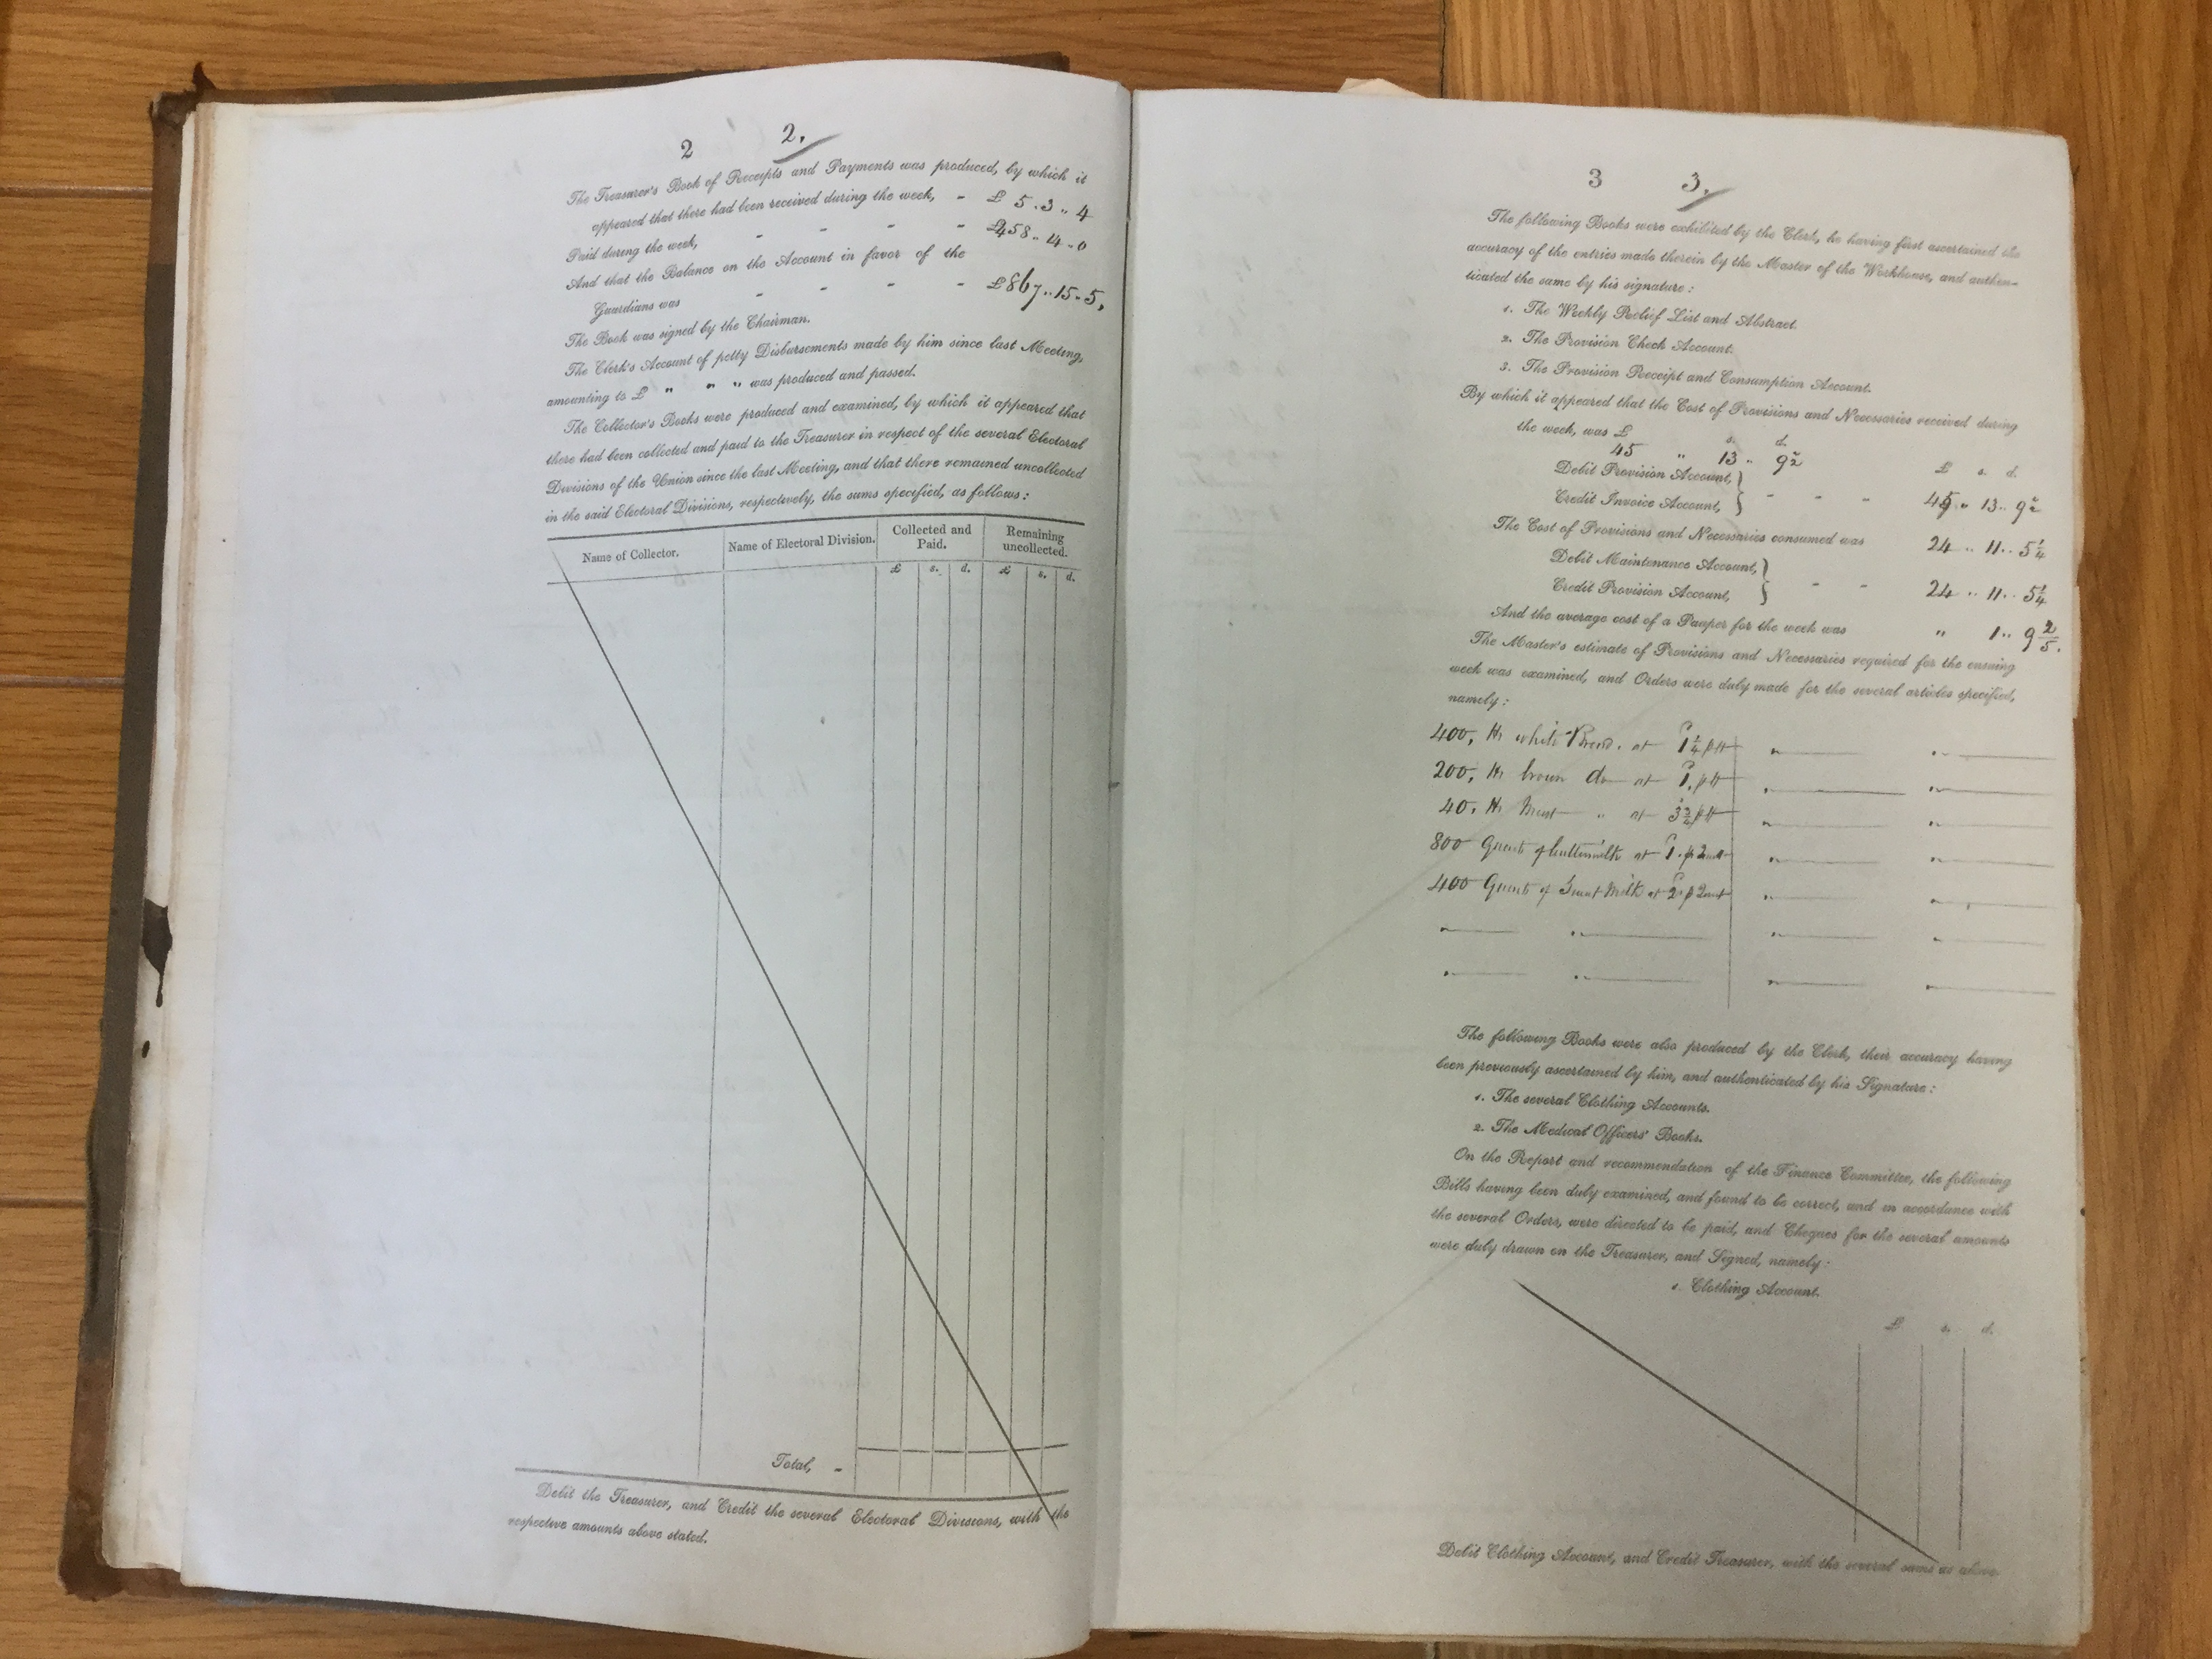 2 2.
The Treasurer's Book of Receipts and Payments was produced, by which it
appeared that there had been received during the week, - £ 5 .. 3 .. 4
Paid during the week, - - - - £458 .. 4 .. 0
And that the Balance on the Account in favor of the
Guardians was - - - - £867 .. 15 .. 5,
The Book was signed by the Chairman.
The Clerk's Account of petty Disbursements made by him since last Meeting,
amounting to £ " " " was produced and passed.
The Collector's Books were produced and examined, by which it appeared that
there had been collected and paid to the Treasurer in respect of the several Electoral
Divisions of the Union since the last Meeting, and that there remained uncollected
in the said Electoral Divisions, respectively, the sums specified, as follows:
Name of Collector. Name of Electoral Division. Collected and Paid. Remaining uncollected.
£ s. d. £ s. d.
Total, -
Debit the Treasurer, and Credit the several Electoral Divisions, with the
respective amounts above stated.
3 3.
The following Books were exhibited by the Clerk, he having first ascertained the
accuracy of the entries made therein by the Master of the Workhouse, and authen-
ticated the same by his signature:
1. The Weekly Relief List and Abstract.
2. The Provision Check Account.
3. The Provision Receipt and Consumption Account.
By which it appeared that the Cost of Provisions and Necessaries received during
the week, was £ s. d.
45 " 13 ..
Debit Provision Account, £ s. d.
Credit Invoice Account, } - - - 45 .. 13 ..
The Cost of Provisions and Necessaries consumed was 24 .. 11 .. 5¼
Debit Maintenance Account,
Credit Provision Account, } - - 24 .. 11 .. 5¼
And the average cost of a Pauper for the week was " 1 .. 9 2/5.
The Master's estimate of Provisions and Necessaries required for the ensuing
week was examined, and Orders were duly made for the several articles specified,
namely:
400, lbs white Bread. at 1¼ p lb " "
200, lbs brown do at 1. p lb " "
40, lbs Meat " at 3¾ p lb " "
800 Quarts of buttermilk at 1. p Quart " "
400 Quarts of Sweet Milk at 2 p Quart " "
" " " "
" " " "
The following Books were also produced by the Clerk, their accuracy having
been previously ascertained by him, and authenticated by his Signature:
1. The several Clothing Accounts.
2. The Medical Officers' Books.
On the Report and recommendation of the Finance Committee, the following
Bills having been duly examined, and found to be correct, and in accordance with
the several Orders, were directed to be paid, and Cheques for the several amounts
were duly drawn on the Treasurer, and Signed, namely:
1. Clothing Account.
£ s. d.
Debit Clothing Account, and Credit Treasurer, with the several sums as above.